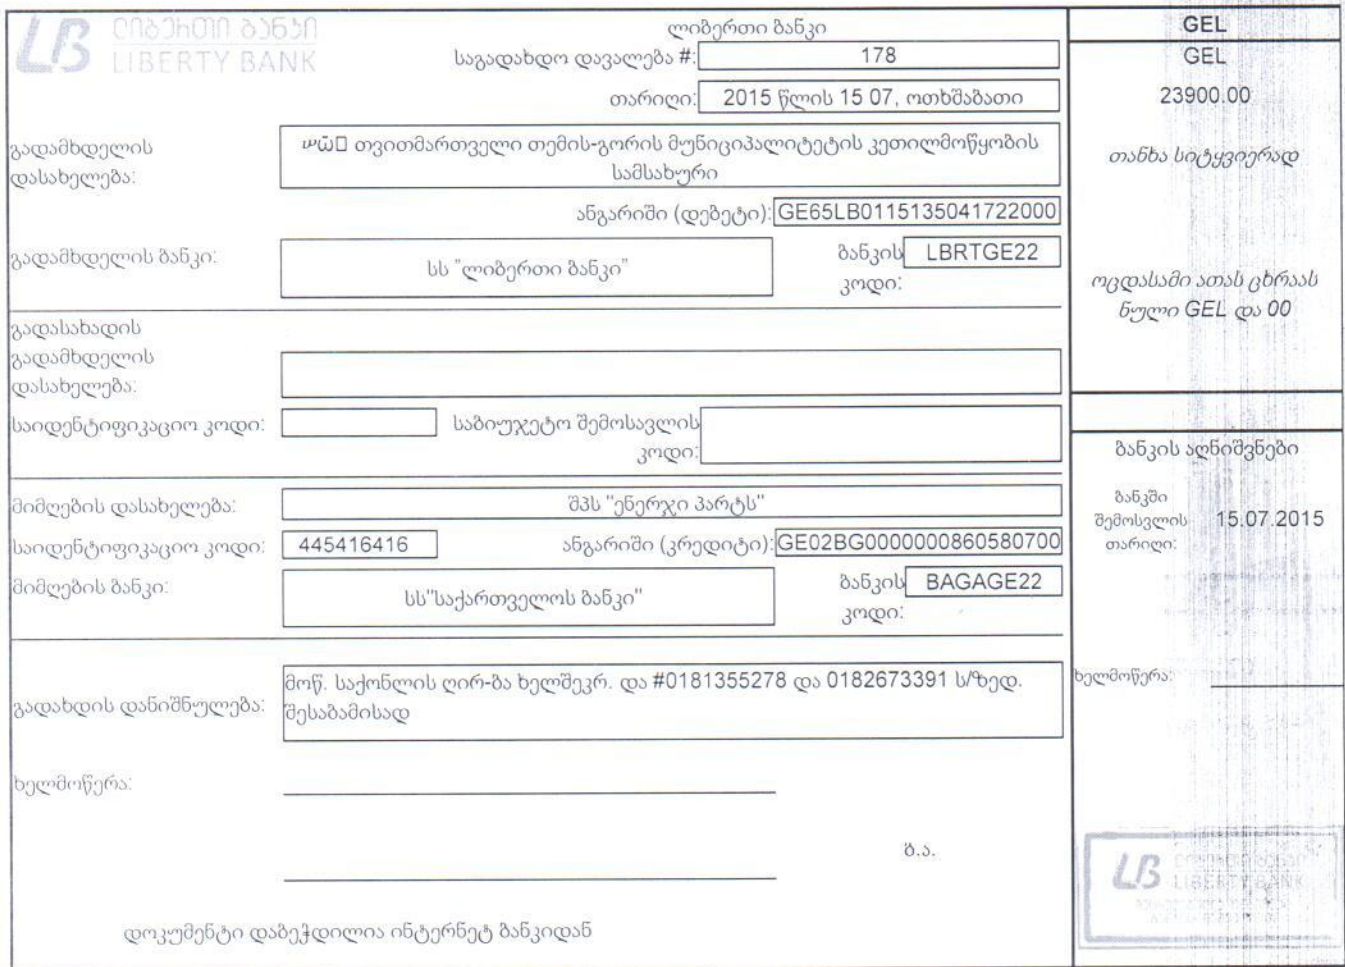 ლიბერთი ბანკი
LIBERTY BANK
ლიბერთი ბანკი
საგადახდო დავალება #: 178
თარიღი: 2015 წლის 15 07, ოთხშაბათი
გადამხდელის
დასახელება:
თვითმართველი თემის-გორის მუნიციპალიტეტის კეთილმოწყობის
სამსახური
ანგარიში (დებეტი): GE65LB0115135041722000
გადამხდელის ბანკი: სს "ლიბერთი ბანკი" ბანკის კოდი: LBRTGE22
გადასახადის
გადამხდელის
დასახელება:
საიდენტიფიკაციო კოდი: საბიუჯეტო შემოსავლის
კოდი:
მიმღების დასახელება: შპს "ენერჯი პარტს"
საიდენტიფიკაციო კოდი: 445416416 ანგარიში (კრედიტი): GE02BG0000000860580700
მიმღების ბანკი: სს"საქართველოს ბანკი" ბანკის კოდი: BAGAGE22
გადახდის დანიშნულება:
მოწ. საქონლის ღირ-ბა ხელშეკრ. და #0181355278 და 0182673391 ს/ზედ.
შესაბამისად
ხელმოწერა:
ბ.ა.
დოკუმენტი დაბეჭდილია ინტერნეტ ბანკიდან
GEL
GEL
23900.00
თანხა სიტყვიერად
ოცდასამი ათას ცხრაას
ნული GEL და 00
ბანკის აღნიშვნები
ბანკში
შემოსვლის 15.07.2015
თარიღი:
ხელმოწერა:
LIBERTY BANK